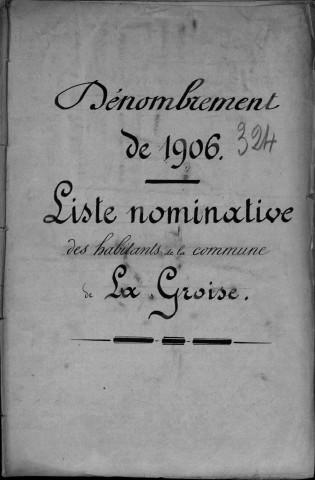 Dénombrement
de 1906. 324
Liste nominative
des habitants de la commune
de La Groise.